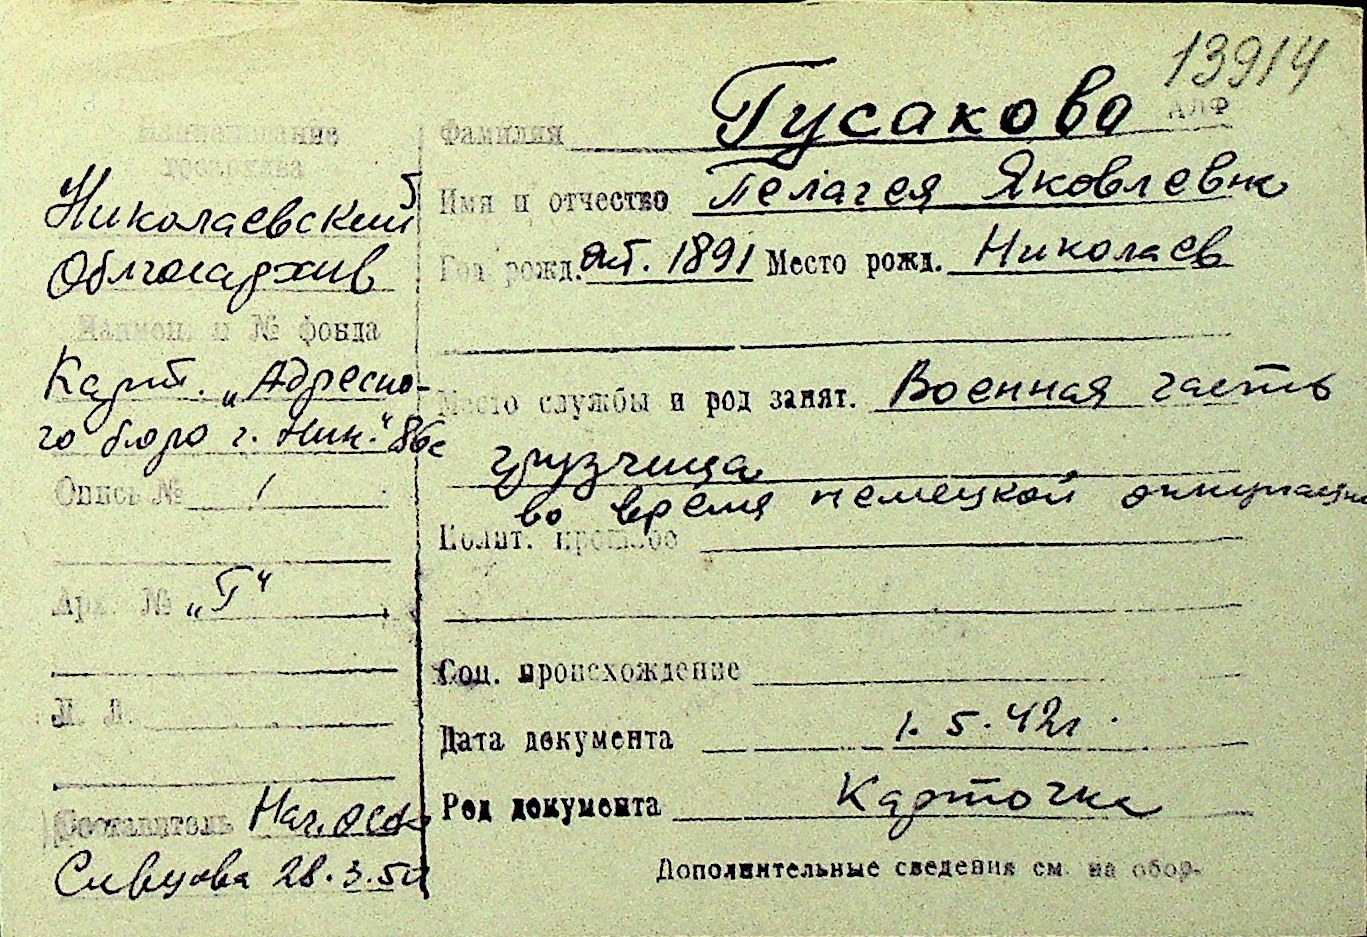 13914
АЛФ
Наименование
госархива
Николаевский
Облгосархив
Наимен. и № фонда
Карт. „Адресно-
го бюро г. Ник."
Опись № 1
Арх. № „Г"
К. Л.
Составитель Нач.
Сивцова 28.3.50
Фамилия Гусакова
Имя и отчество Пелагея Яковлевна
Год рожд. 1891 Место рожд. Николаев
Место службы и род занят. Военная часть
грузчица
во время немецкой оккупации
Полит. прошлое
Соц. происхождение
Дата документа 1.5.42г.
Род документа Карточка
Дополнительные сведения см. на обор.